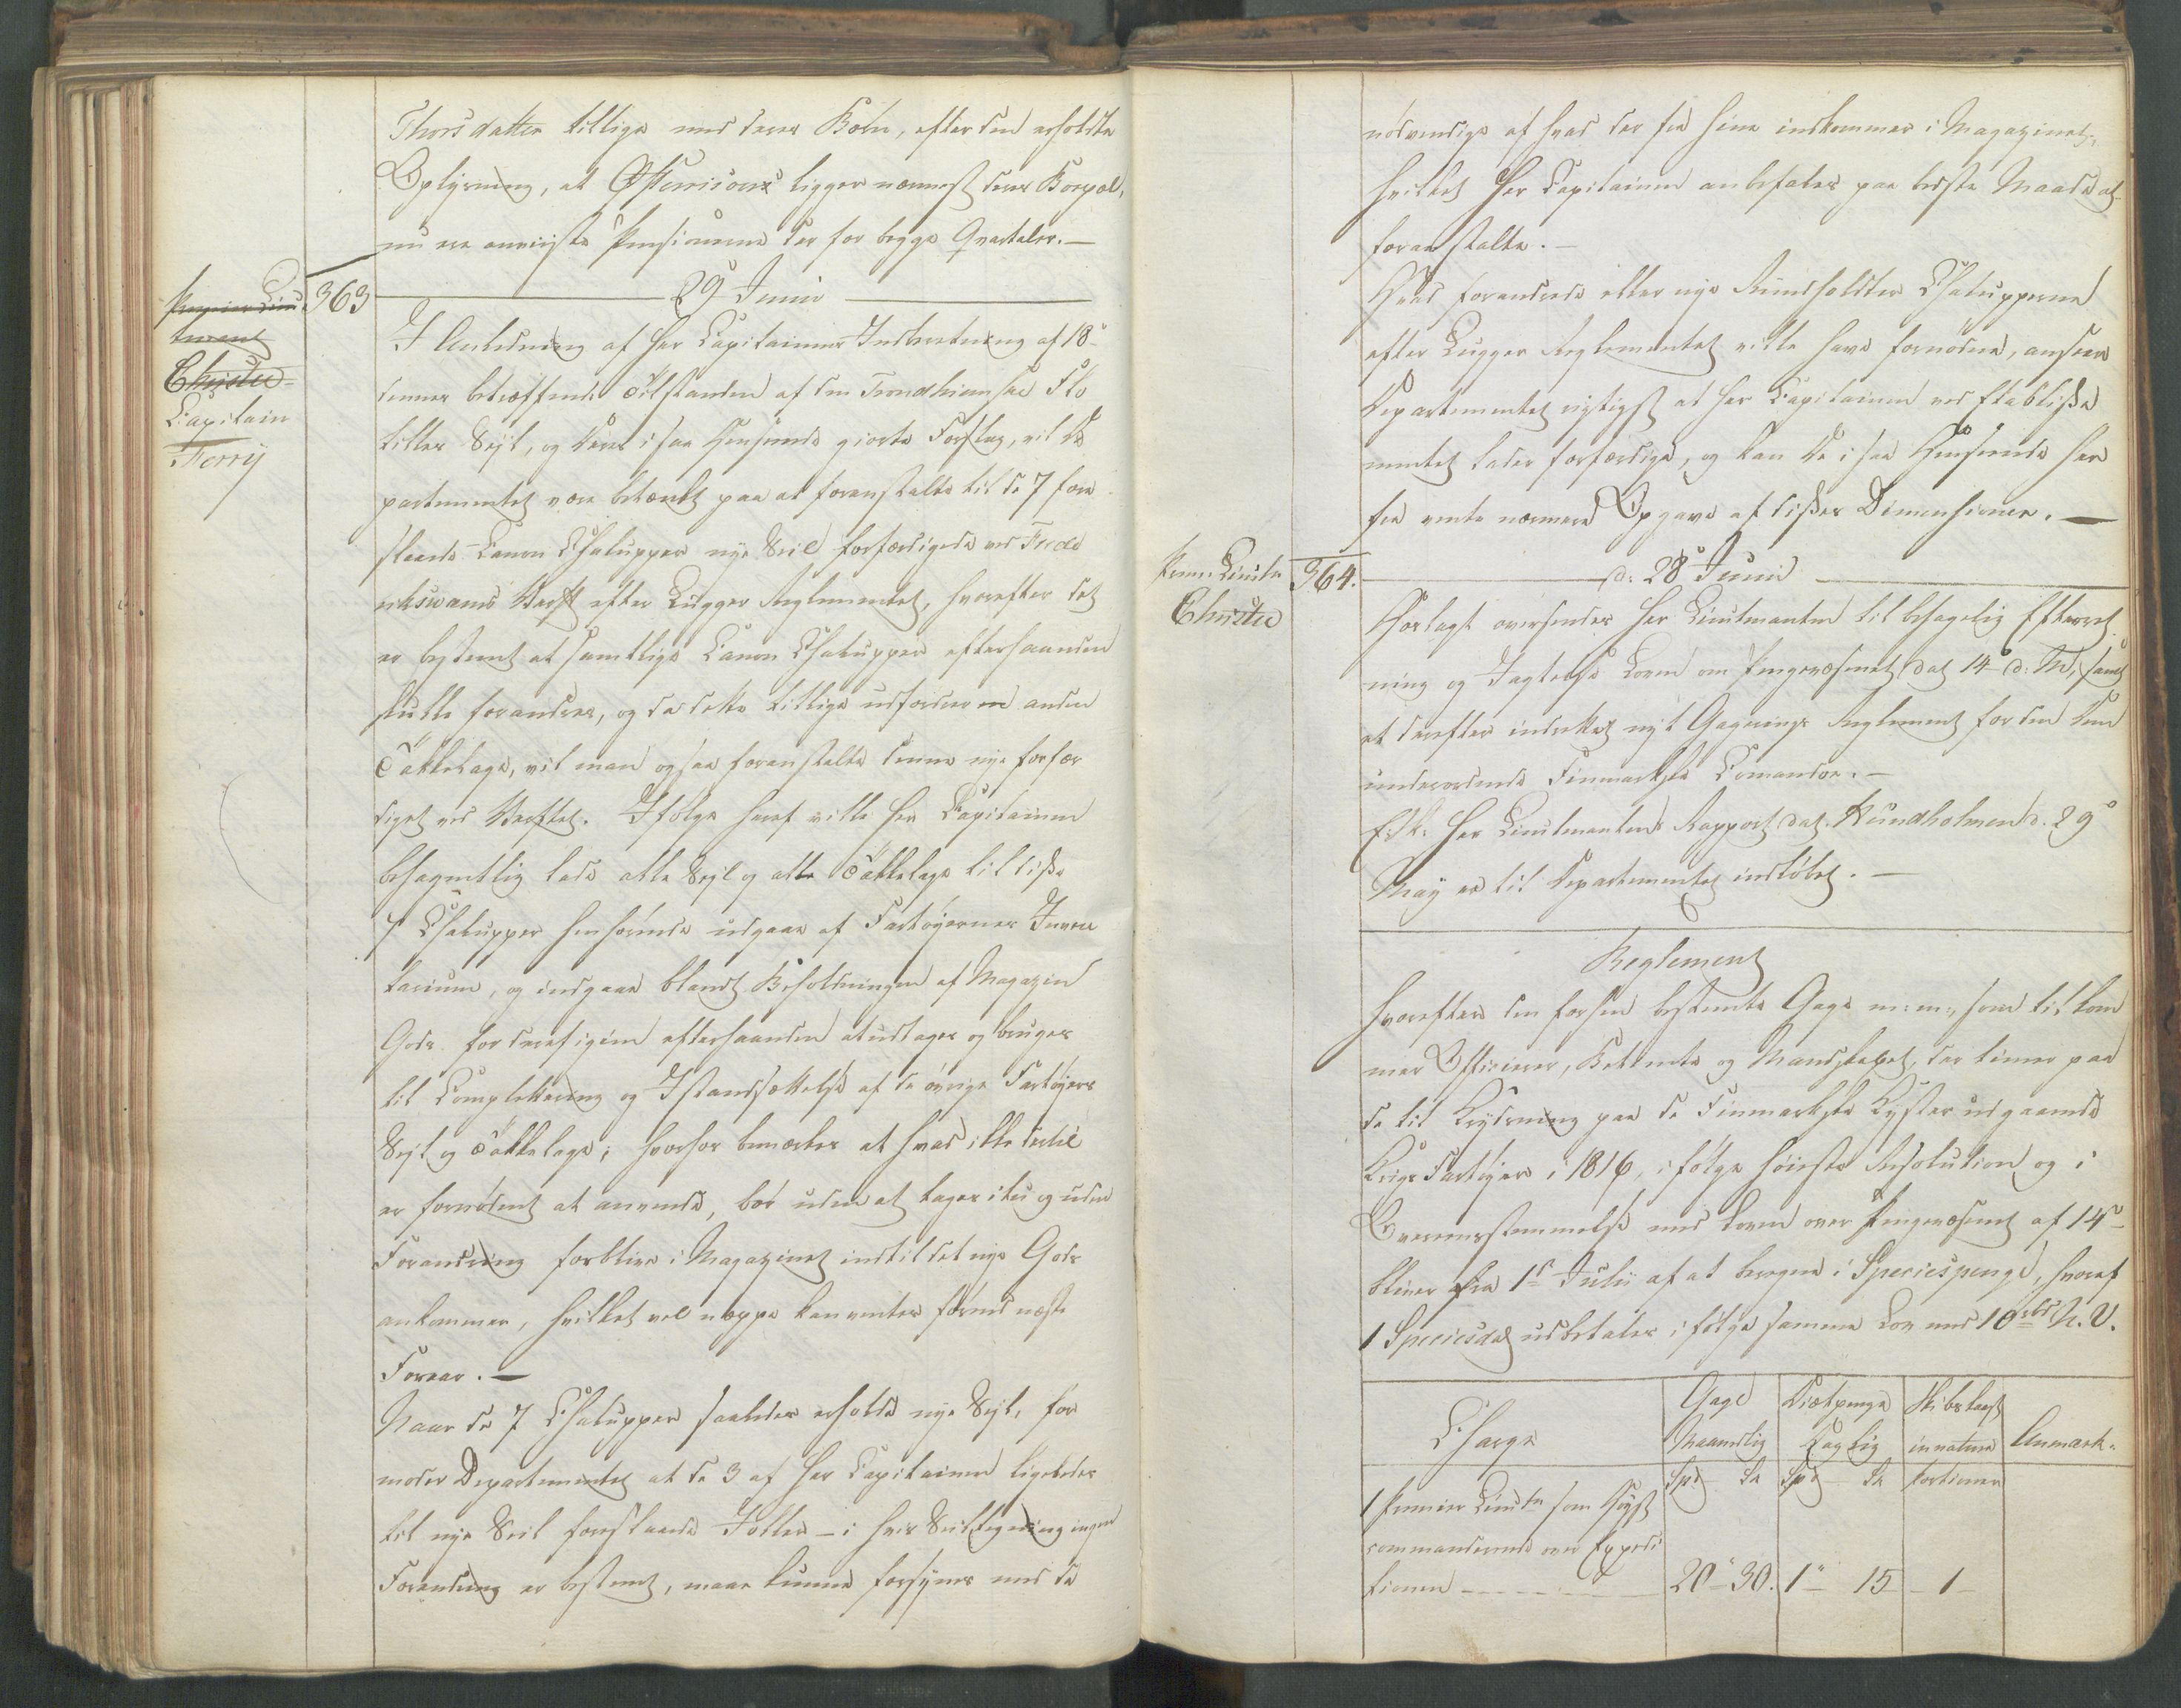 Thorsdatter tillige med deres Børn, efter den erholdte
Oplysning, at Østerrisøer ligger nærmest deres Bopæl,
nu ere anviiste Pensionerne der for begge Qvartaler. —
363
29 Junii
Premier Lieu
tenant
Christie
Capitain
Ferry
I Anledning af Her Capitainens Indberetning af 18de
dennes betræffende Tilstanden af den Trondhiemske Flo
tilles Seyl, og deres i saa Henseende giorte Forslag, vil De
partementet være betænkt paa at foranstalte til de 7 fore
slaaede Canon Chalupper nye Seil forfærdigede ved Frede
riksværns Værft efter Lugger Reglementet, hvorefter det
er bestemt at samtlige Canon Chalupper efterhaanden
skulle forandres, og da dette tillige udfordrer en anden
Takkelage, vil man ogsaa foranstalte denne nye forfær
diget ved Værftet. Ifølge heraf ville Her Capitainen
behageligen lade alle Seyl og alle Takkelage til disse
7 Chalupper henhørende udgaae af Fartøyernes Inven
tarium, og indgaae blandt Beholdningen af Magazin
Gods for derefigien efterhaanden at udtages og bruges
til Complettering og Istandsættelse af de øvrige Fartøyers
Seyl og Takkelage; hvorhos bemærkes at hvad ikke dertil
er fornødent at anvende, bør uden at tages itu og uden
Forandring forblive i Magazinet indtil det nye Gods
ankommer, hvilket vel neppe kan ventes førend næste
Foraar. —
Naar de 7 Chalupper saaledes erholde nye Seyl, for
moder Departementet at de 3 af Her Capitainen ligeledes
til nye Seil foreslaaede Joller — i hvis Seiltegning ingen
Forandring er bestemt, maae kunne forsynes med de
nødvendige af hvad der fra hine indkommer i Magazinet;
hvilket Her Capitainen anbefales paa bedste Maade at
foranstalte. —
Hvad forandrede eller nye Rundholdter Chalupperne
efter Lugger Reglementet ville have fornødne, ansees
Departementet rigtigst at Her Capitainen ved Etablisse
mentet lader forfærdige, og kan De i saa Henseende her
fra vente nærmere Opgave af disses Dimensioner. —
Prem: Lieutn
Christie
364.
d: 28 Junii
Hoslagt oversendes Her Lieutnanten til behagelig Efterret
ning og Iagttelse Loven om Pengevæsenet dat 14 d: M, samt
et derefter indrettet nyt Gagerings Reglement for den Dem
underordnede Finmarkske Comando. —
E. S. Her Lieutnantens Rapport dat. Hundholmen d. 29
May er til Departementet indløbet. —
Reglement
hvorefter den forhen bestemte Gage m: m:, som tilkom
mer Officerer, Betiente og Mandskabet, der tiener paa
de til Krydsning paa de Finmarkske Kyster udgaaende
Krigs Fartøyer i 1816, i følge høieste Resolution og i
Overeensstemmelse med Loven over Pengevæsenet af 14de
bliver fra 1ste Julii af at beregne i Speciespenge, hvoraf
1 Speciesdal udbetales i følge samme Lov med 10 rbd N. V.
Charge
Gage
Maanedlig
Diætpenge
Daglig
Skibskost
in natura
Anmærk.
Spd
Sk
Spd
Sk
Portioner
1 Premier Lieutn som Høyst
commanderende over Expedi
tionen - - - - - - 20 - 30. 1 - 15 - 1 -